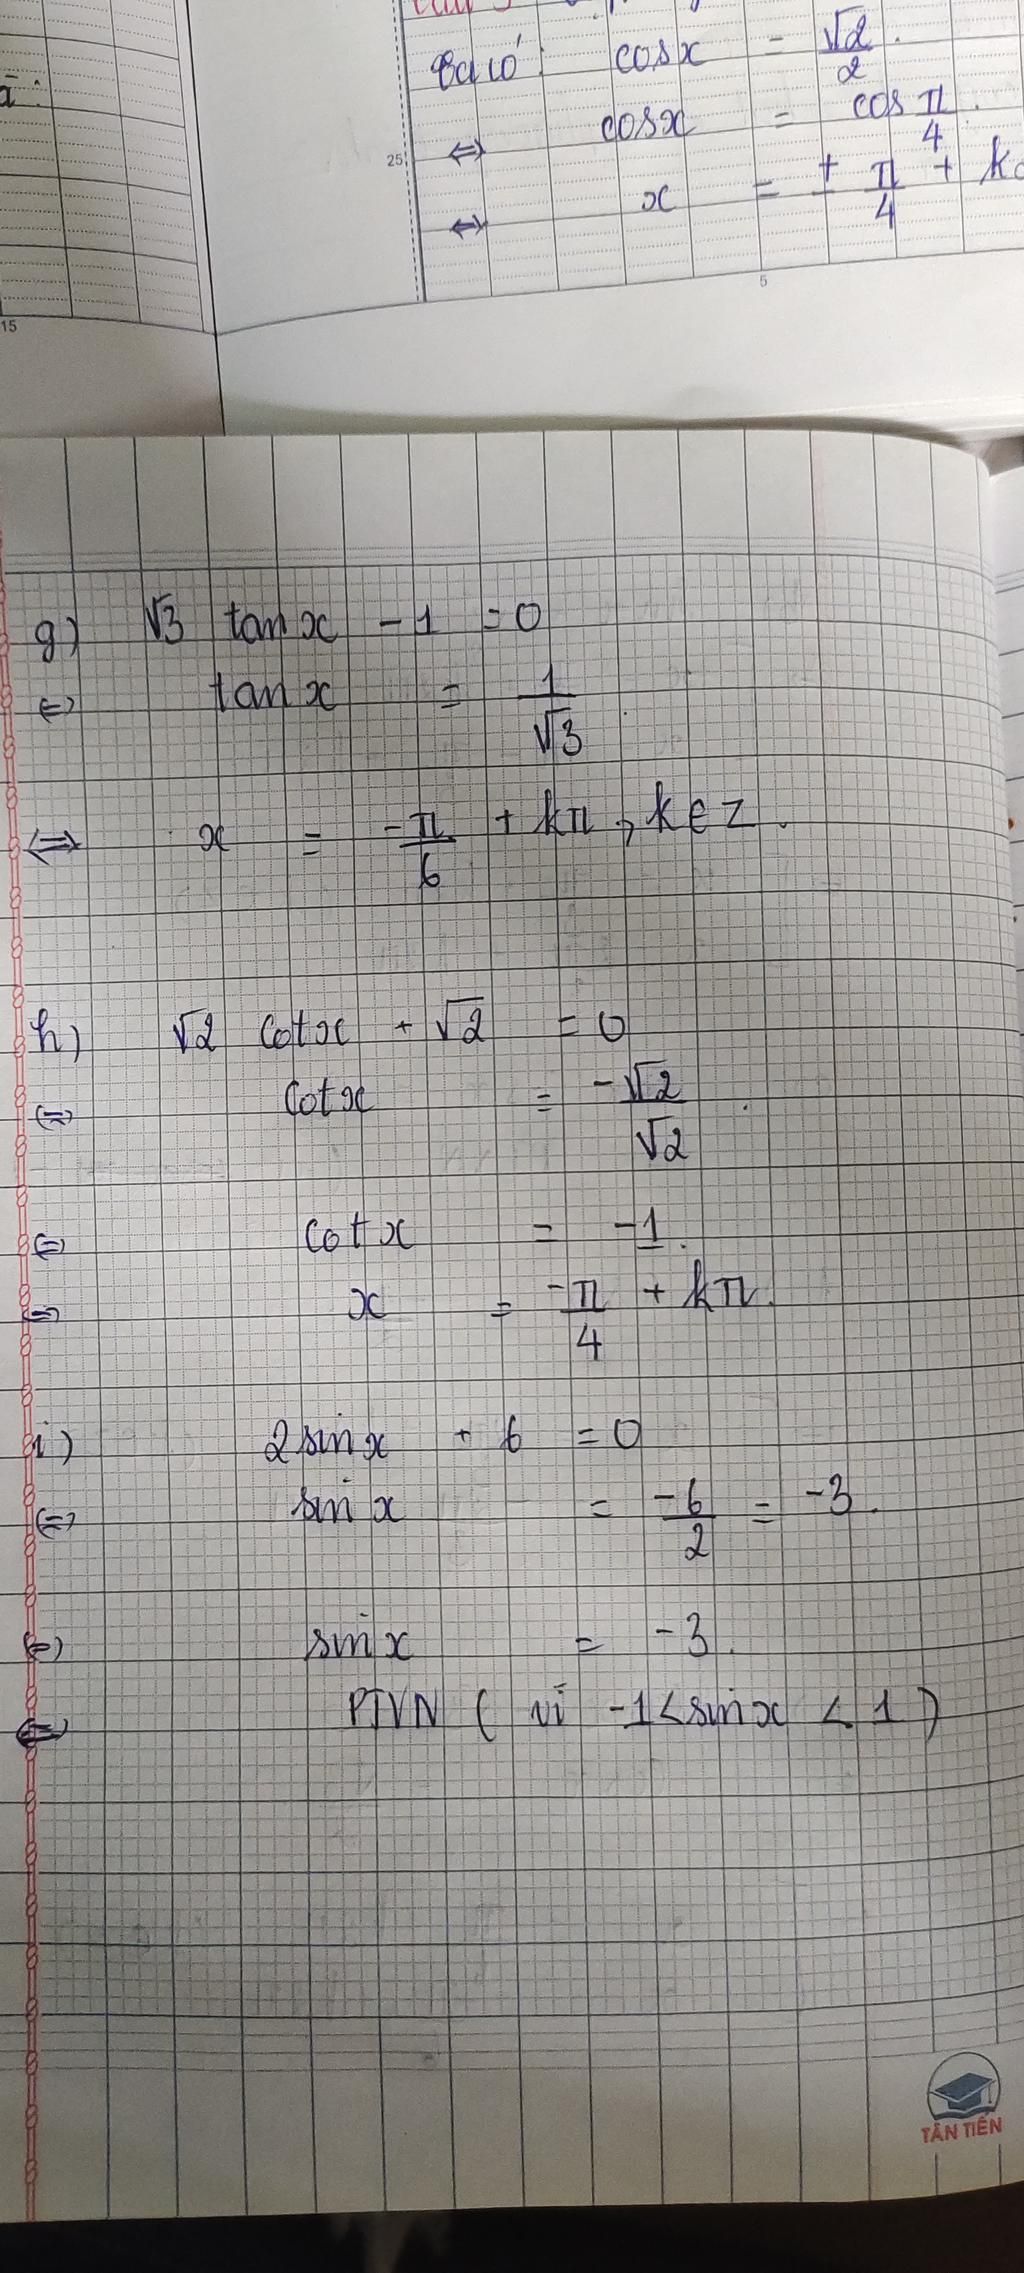 Ta có: cosx = √2/2.
25
⇔ cosx = cos π/4.
⇔ x = ± π/4 + k
5
15
g) √3 tanx - 1 = 0
⇔ tanx = 1/√3.
⇔ x = -π/6 + kπ, k∈Z.
h) √2 cotx + √2 = 0
⇔ cotx = -√2/√2.
⇔ cotx = -1.
⇔ x = -π/4 + kπ.
i) 2sinx + 6 = 0
⇔ sinx = -6/2 = -3.
⇔ sinx = -3.
⇔ PTVN ( vì -1<sinx < 1)
TÂN TIẾN